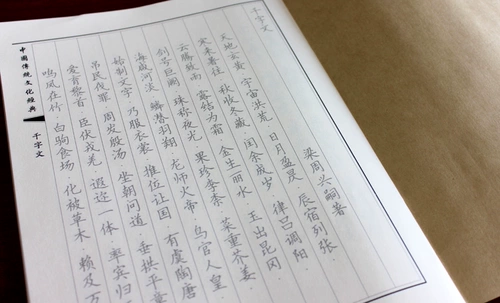 千字文
梁周兴嗣著
天地玄黄 宇宙洪荒 日月盈昃 辰宿列张
寒来暑往 秋收冬藏 闰余成岁 律吕调阳
云腾致雨 露结为霜 金生丽水 玉出昆冈
剑号巨阙 珠称夜光 果珍李柰 菜重芥姜
海咸河淡 鳞潜羽翔 龙师火帝 鸟官人皇
始制文字 乃服衣裳 推位让国 有虞陶唐
吊民伐罪 周发殷汤 坐朝问道 垂拱平章
爱育黎首 臣伏戎羌 遐迩一体 率宾归
鸣凤在竹 白驹食场 化被草木 赖及万
中国传统文化经典
千字文